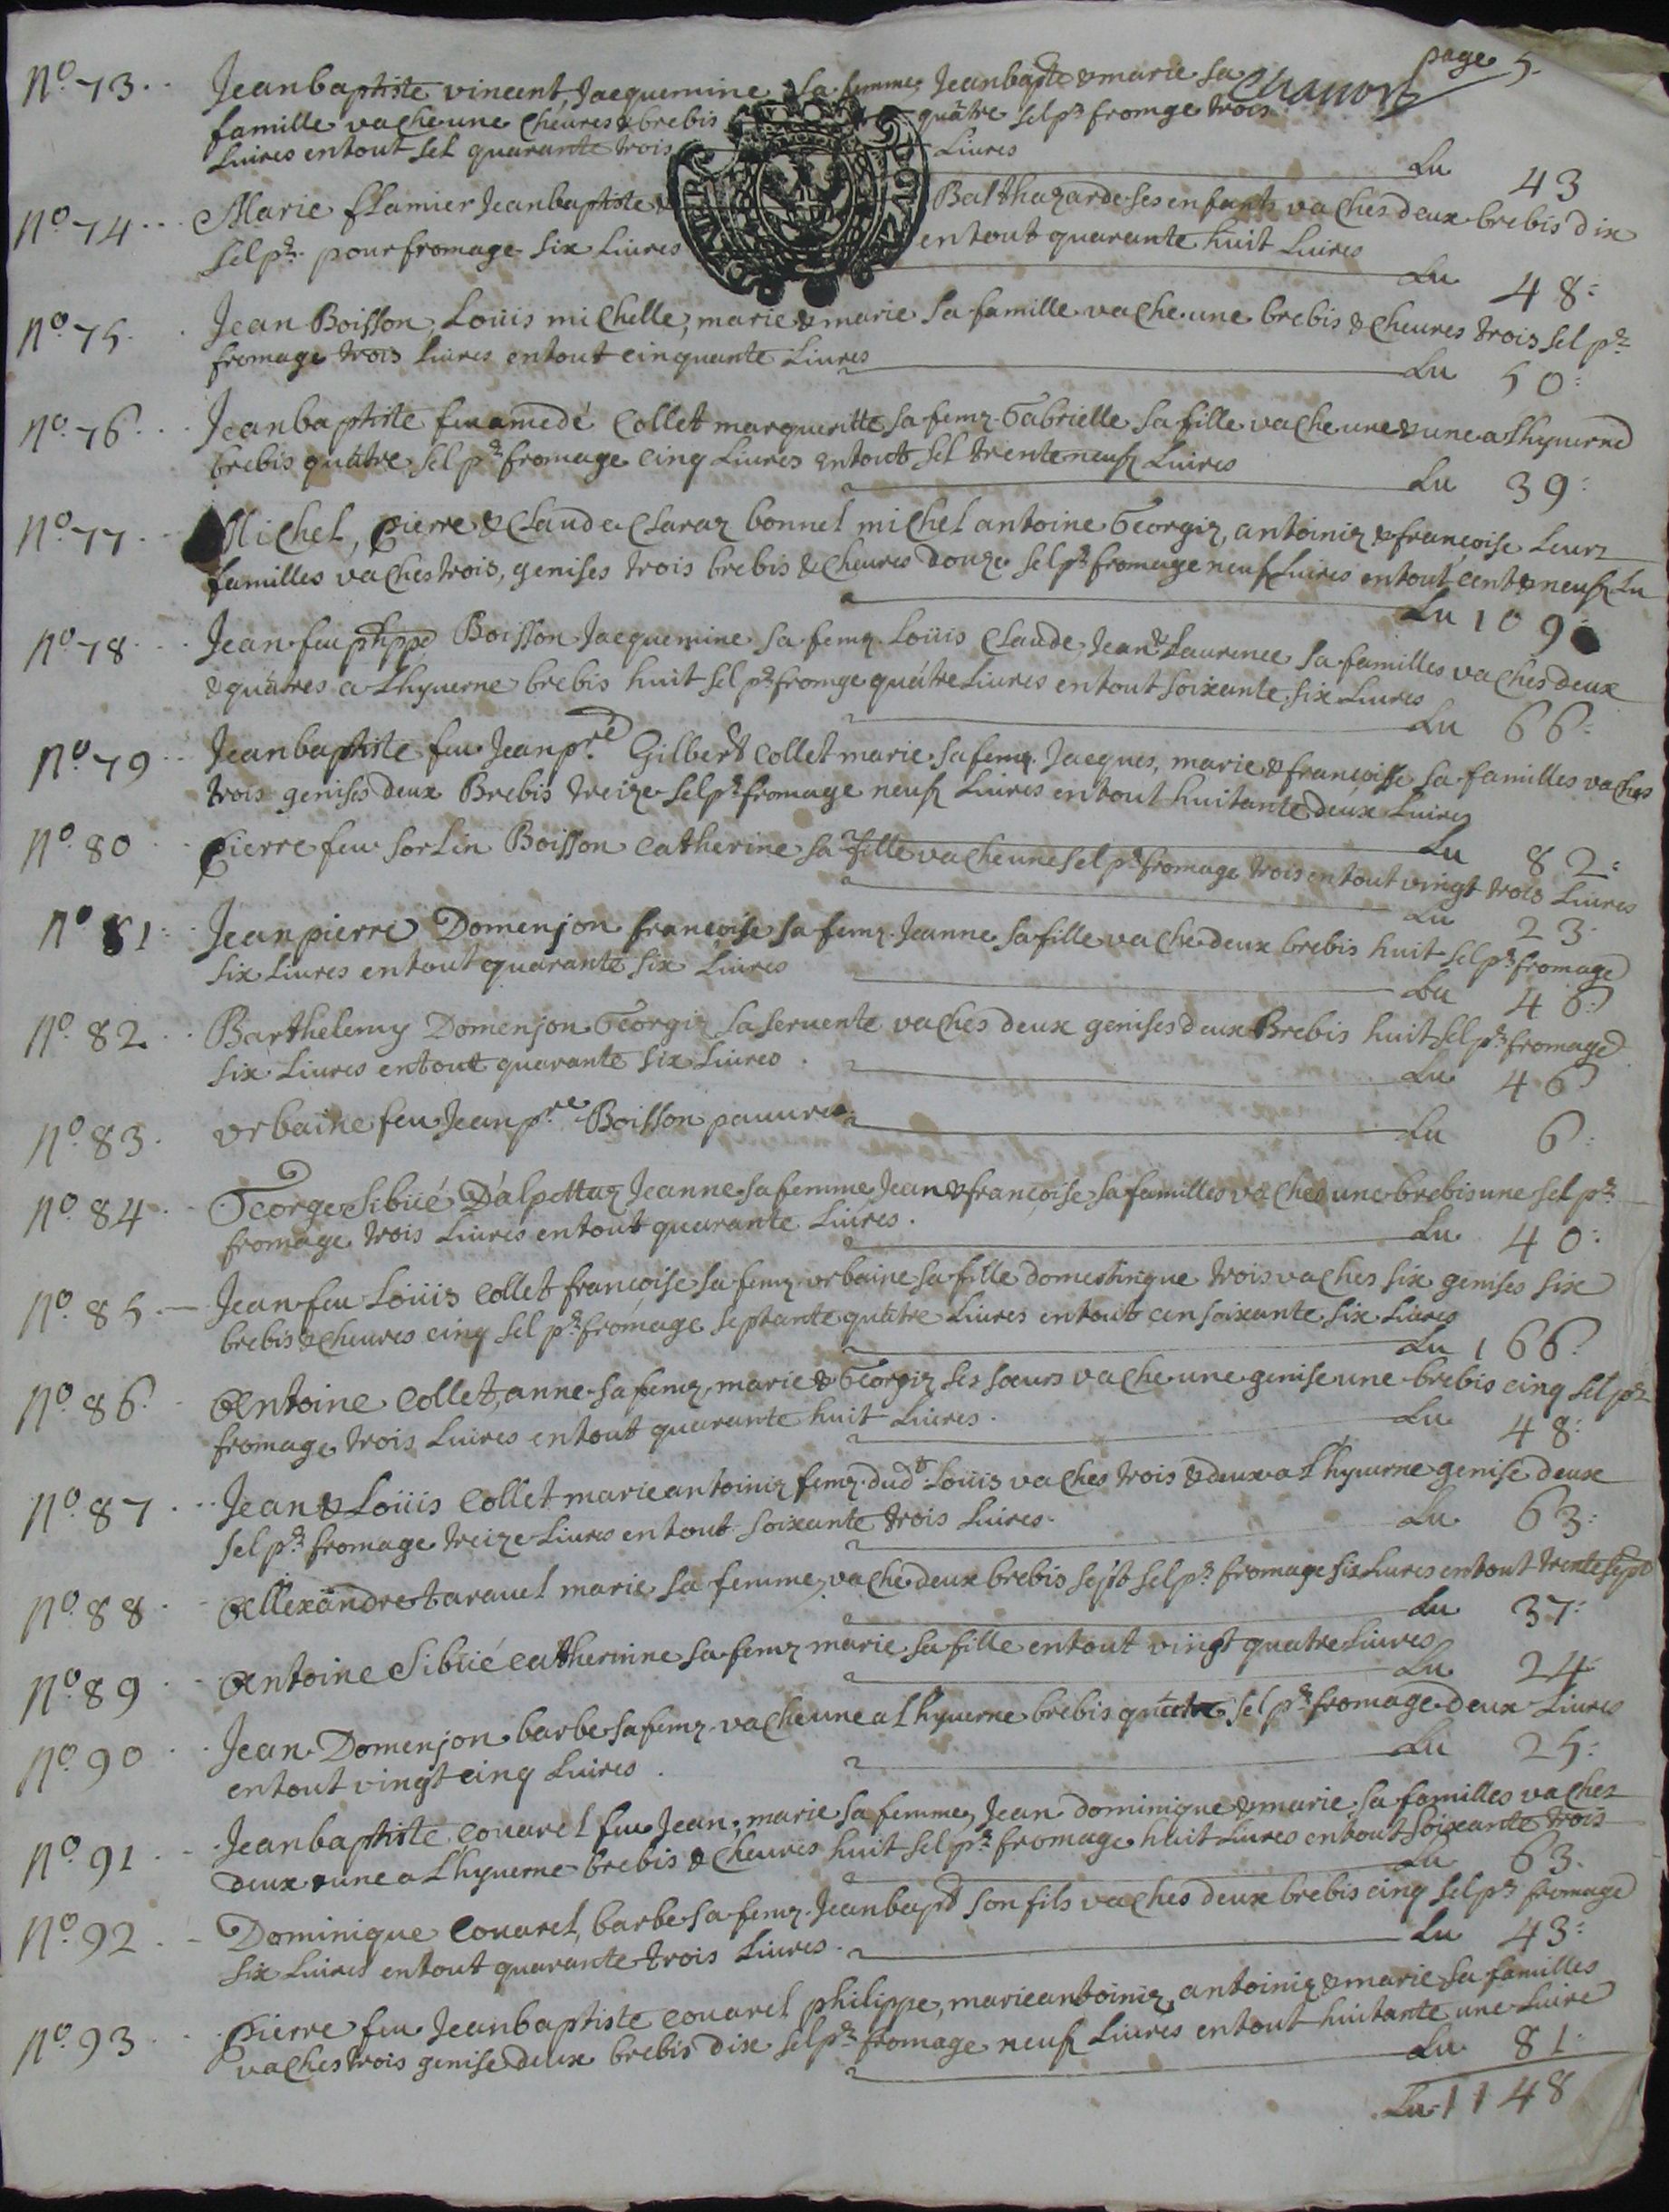 page 5.
Chanort
No. 73.. Jeanbaptiste vincent Jacquemine sa femme Jeanbapte & marie sa
famille vache une cheures & brebis quâtre sel pr fromge trois
Liures en tout sel quarante trois Liures
Lu 43
No. 74... Marie flamier Jeanbaptiste & Balthazarde ses enfants vaches deux brebis dix
sel pr. pour fromage six Liures en tout quarante huit Liures
Lu 48:
No. 75. . Jean Boisson, Loüis michelle, marie & marie sa famille vache une brebis & cheures trois sel pr
fromage trois liures en tout cinquante Liures
Lu 50:
No. 76. .. Jeanbaptiste feu amedé Collet margueritte sa femz. Gabrielle sa fille vache une & une a Lhyuerne
brebis quâtre sel pr fromage cinq Liures en tout sel trente neuf Liures
Lu 39:
No. 77.. Michel, Pierre & Claude Claraz bonnel michel antoine Georgiz, antoiniz & françoise Leurs
familles vaches trois, genises trois brebis & cheures douze sel pr fromage neuf Liures en tout cent & neuf Lu
Lu 109
No. 78... Jean feu phippe Boisson Jacquemine sa femz. Loüis Claude, Jean & Laurence sa familles vaches deux
& quâtres a Lhyuerne brebis huit sel pr fromge quâtre Liures en tout soixante six Liures
Lu 66:
No. 79.. Jeanbaptiste feu Jean pre Gilbert Collet marie sa femz. Jacques, marie & francoisse sa familles vaches
trois genises deux Brebis treize sel pr fromage neuf Liures en tout huitante deux Liures
Lu 82:
No. 80.. Pierre feu sorlin Boisson catherine sa fille vache une sel pr fromage trois en tout vingt trois Liures
Lu 23.
No 81.. Jean pierre Domenjon françoise sa femz. Jeanne sa fille vache deux brebis huit sel pr fromage
six Liures en tout quarante six Liures
Lu 46:
No. 82.. Barthelemy Domenjon Georgiz sa seruente vaches deux genises deux Brebis huit sel pr fromage
six Liures en tout quarante six Liures.
Lu 46
No. 83. vrbaine feu Jean pre Boisson pauure
Lu 6:
No. 84.. George Sibüé Dalpettaz Jeanne sa femme Jean & françoise sa familles vaches une brebis une sel pr
fromage trois Liures en tout quarante Liures.
Lu 40:
No. 85.— Jean feu Loüis Collet françoise sa femz. vrbaine sa fille domestinque trois vaches six genises six
brebis & cheures cinq sel pr fromage septante quâtre Liures en tout cen soixante six Liures
Lu 166:
No. 86. Antoine Collet, anne sa femz, marie & Georgiz ses soeurs vache une genise une brebis cinq sel pr
fromage trois Liures en tout quarante huit Liures.
Lu 48:
No. 87... Jean & Loüis Collet marie antoiniz femz. dudt. Loüis vaches trois & deux a Lhyuerne genise deux
sel pr fromage treize Liures en tout soixante trois Liures.
Lu 63:
No. 88. Allexandre tarauel marie sa femme, vache deux brebis sept sel pr fromage six Liures en tout trente sept
Lu 37:
No. 89.. Antoine Sibüé catherinne sa femz marie sa fille en tout vingt quatre Liures
Lu 24
No. 90.. Jean Domenjon barbe sa femz. vache une a Lhyuerne brebis quâtre sel pr fromage deux Liures
en tout vingt cinq Liures.
Lu 25:
No. 91.. Jeanbaptiste couarel feu Jean, marie sa femme, Jean dominique & marie sa familles vaches
deux & une a Lhyuerne brebis & cheures huit sel pr fromage huit Liures en tout soixante trois
Lu 63.
No. 92.. Dominique Couarel, barbe sa femz. Jeanbapt son fils vaches deux brebis cinq sel pr fromage
six Liures en tout quarante trois Liures.
Lu 43:
No. 93.. Pierre feu Jeanbaptiste couarel philippe, marie antoiniz, antoiniz & marie sa familles
vaches trois genise deux brebis dix sel pr fromage neuf Liures en tout huitante une Liure
Lu 81:
Lu 1148